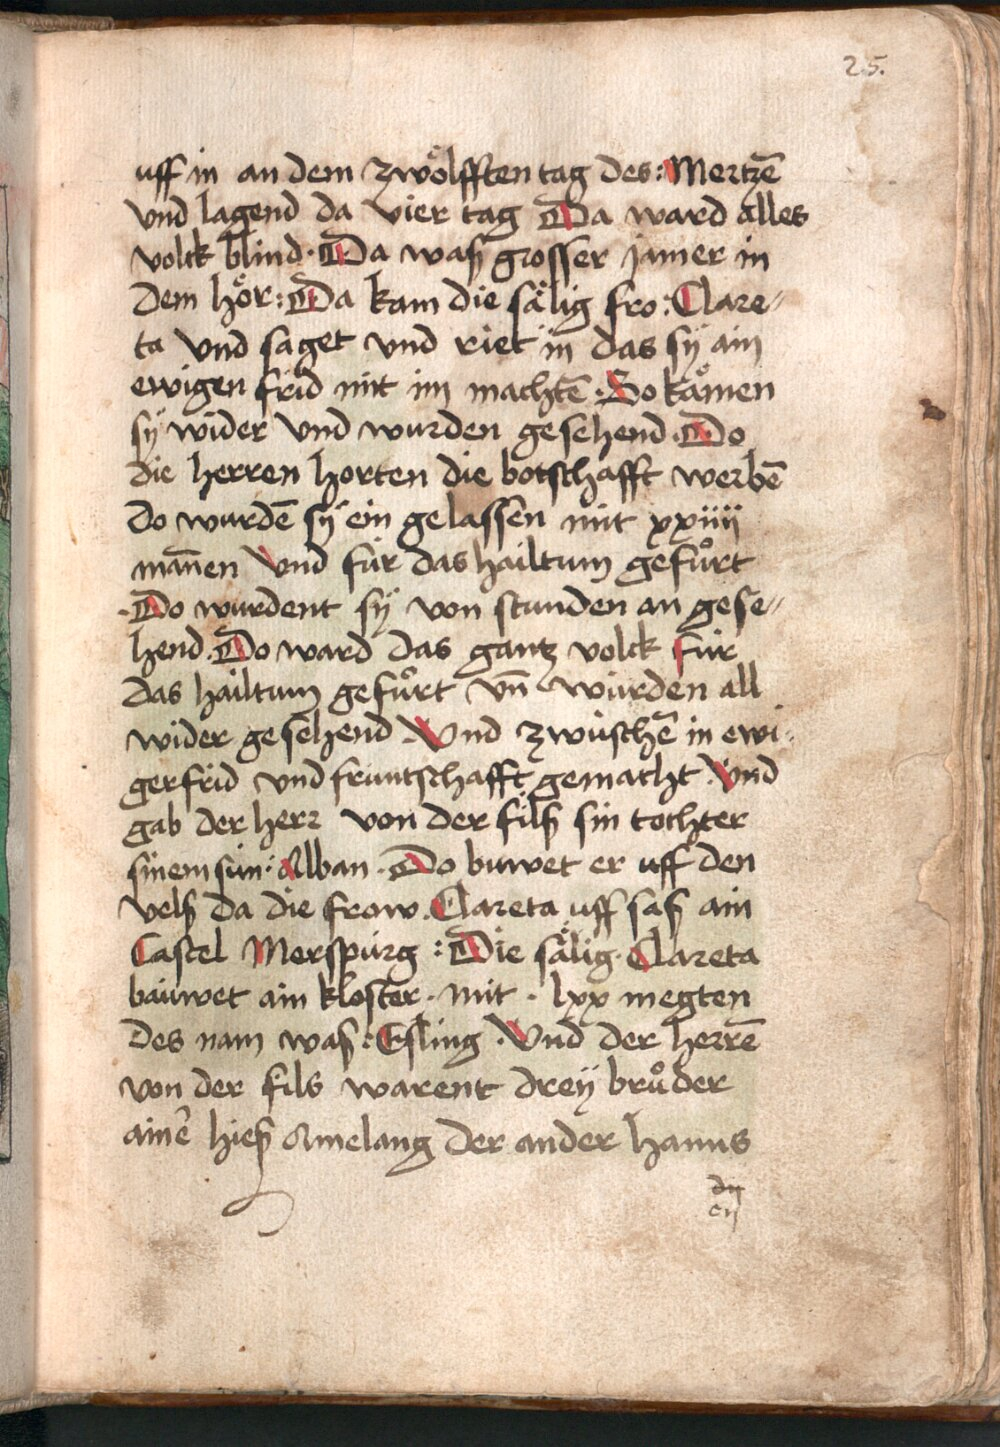 25.
uff in an dem zwölfften tag des: Mertzē
vnd lagend da vier tag Da ward alles
volck blind · Da waß grosser jamer in
dem hör: Da kam die sälig fro: Clare⸗
ta vnd saget vnd riet in das sÿ ain
ewigen frid mit im machtē · So kåmen
sÿ wider vnd wurden gesehend · Do
die herren horten die botschafft werbē
do wurdē sÿ ein gelassen mit xxiiij
man̄en Vnd für das hailtum gefůrt
· Do wurdent sÿ von stunden an gese⸗
hend · Do ward das gantz volck für
das hailtum gefůrt vn̄ wurden all
wider gesehend · Vnd zwüschē in ewi·
ger frid vnd früntschafft gemacht · Vnd
gab der herr von der filß sin tochter
sinem sun: Alban · Do buwet er uff den
velß da die frow · Clareta uff saß ain
Castel Merspurg : Die sälig · Clareta
bauwet ain kloster · mit · lxx megten
des nam waß : Esling · Vnd der herrē
von der fils warent dreÿ brůder
ainē hieß Amelang der ander hanns